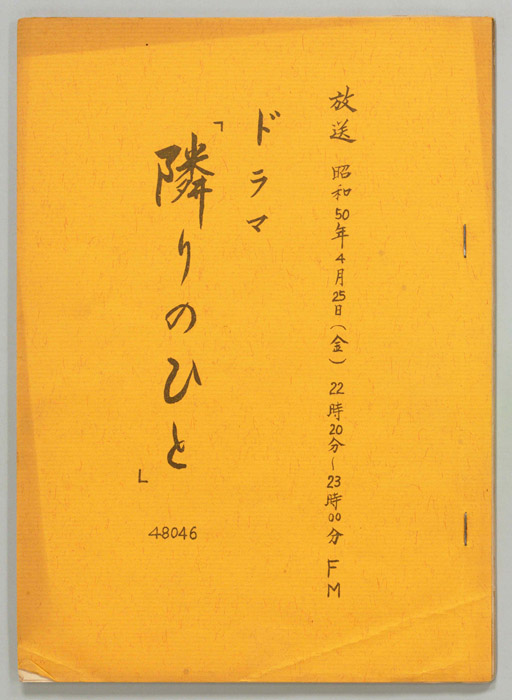 放送 昭和50年4月25日(金) 22時20分~23時00分 FM
ドラマ
「隣りのひと」
48046